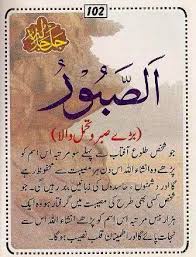 102
جل جلالہ
اَلصَّبُوْرُ
(بڑے صبر و تحمل والا)
جو شخص طلوع آفتاب سے پہلے سو مرتبہ اس اسم کو
پڑھے وہ انشاء اللہ اس دن ہر مصیبت سے محفوظ رہے
گا اور دشمنوں، حاسدوں کی زبانیں بند رہیں گی۔ جو
شخص کسی بھی طرح کی مصیبت میں گرفتار ہو وہ ایک
ہزار بیس مرتبہ اس اسم کو پڑھے انشاء اللہ اس سے
نجات پائے گا اور اطمینان قلب نصیب ہو گا۔